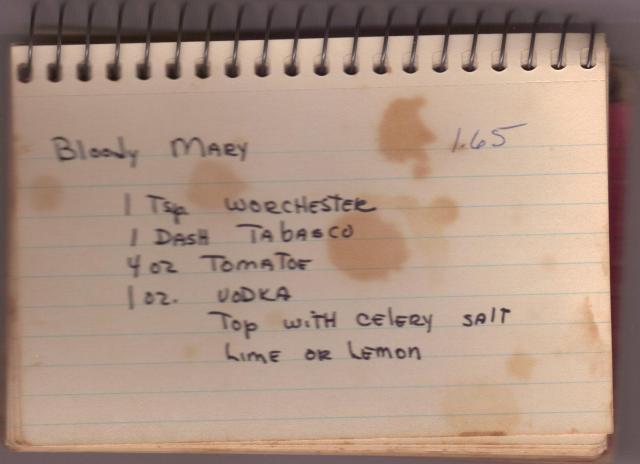 Bloody Mary 1.65
1 Tsp Worchester
1 Dash Tabasco
4 oz Tomatoe
1 oz. Vodka
Top with celery salt
Lime or Lemon